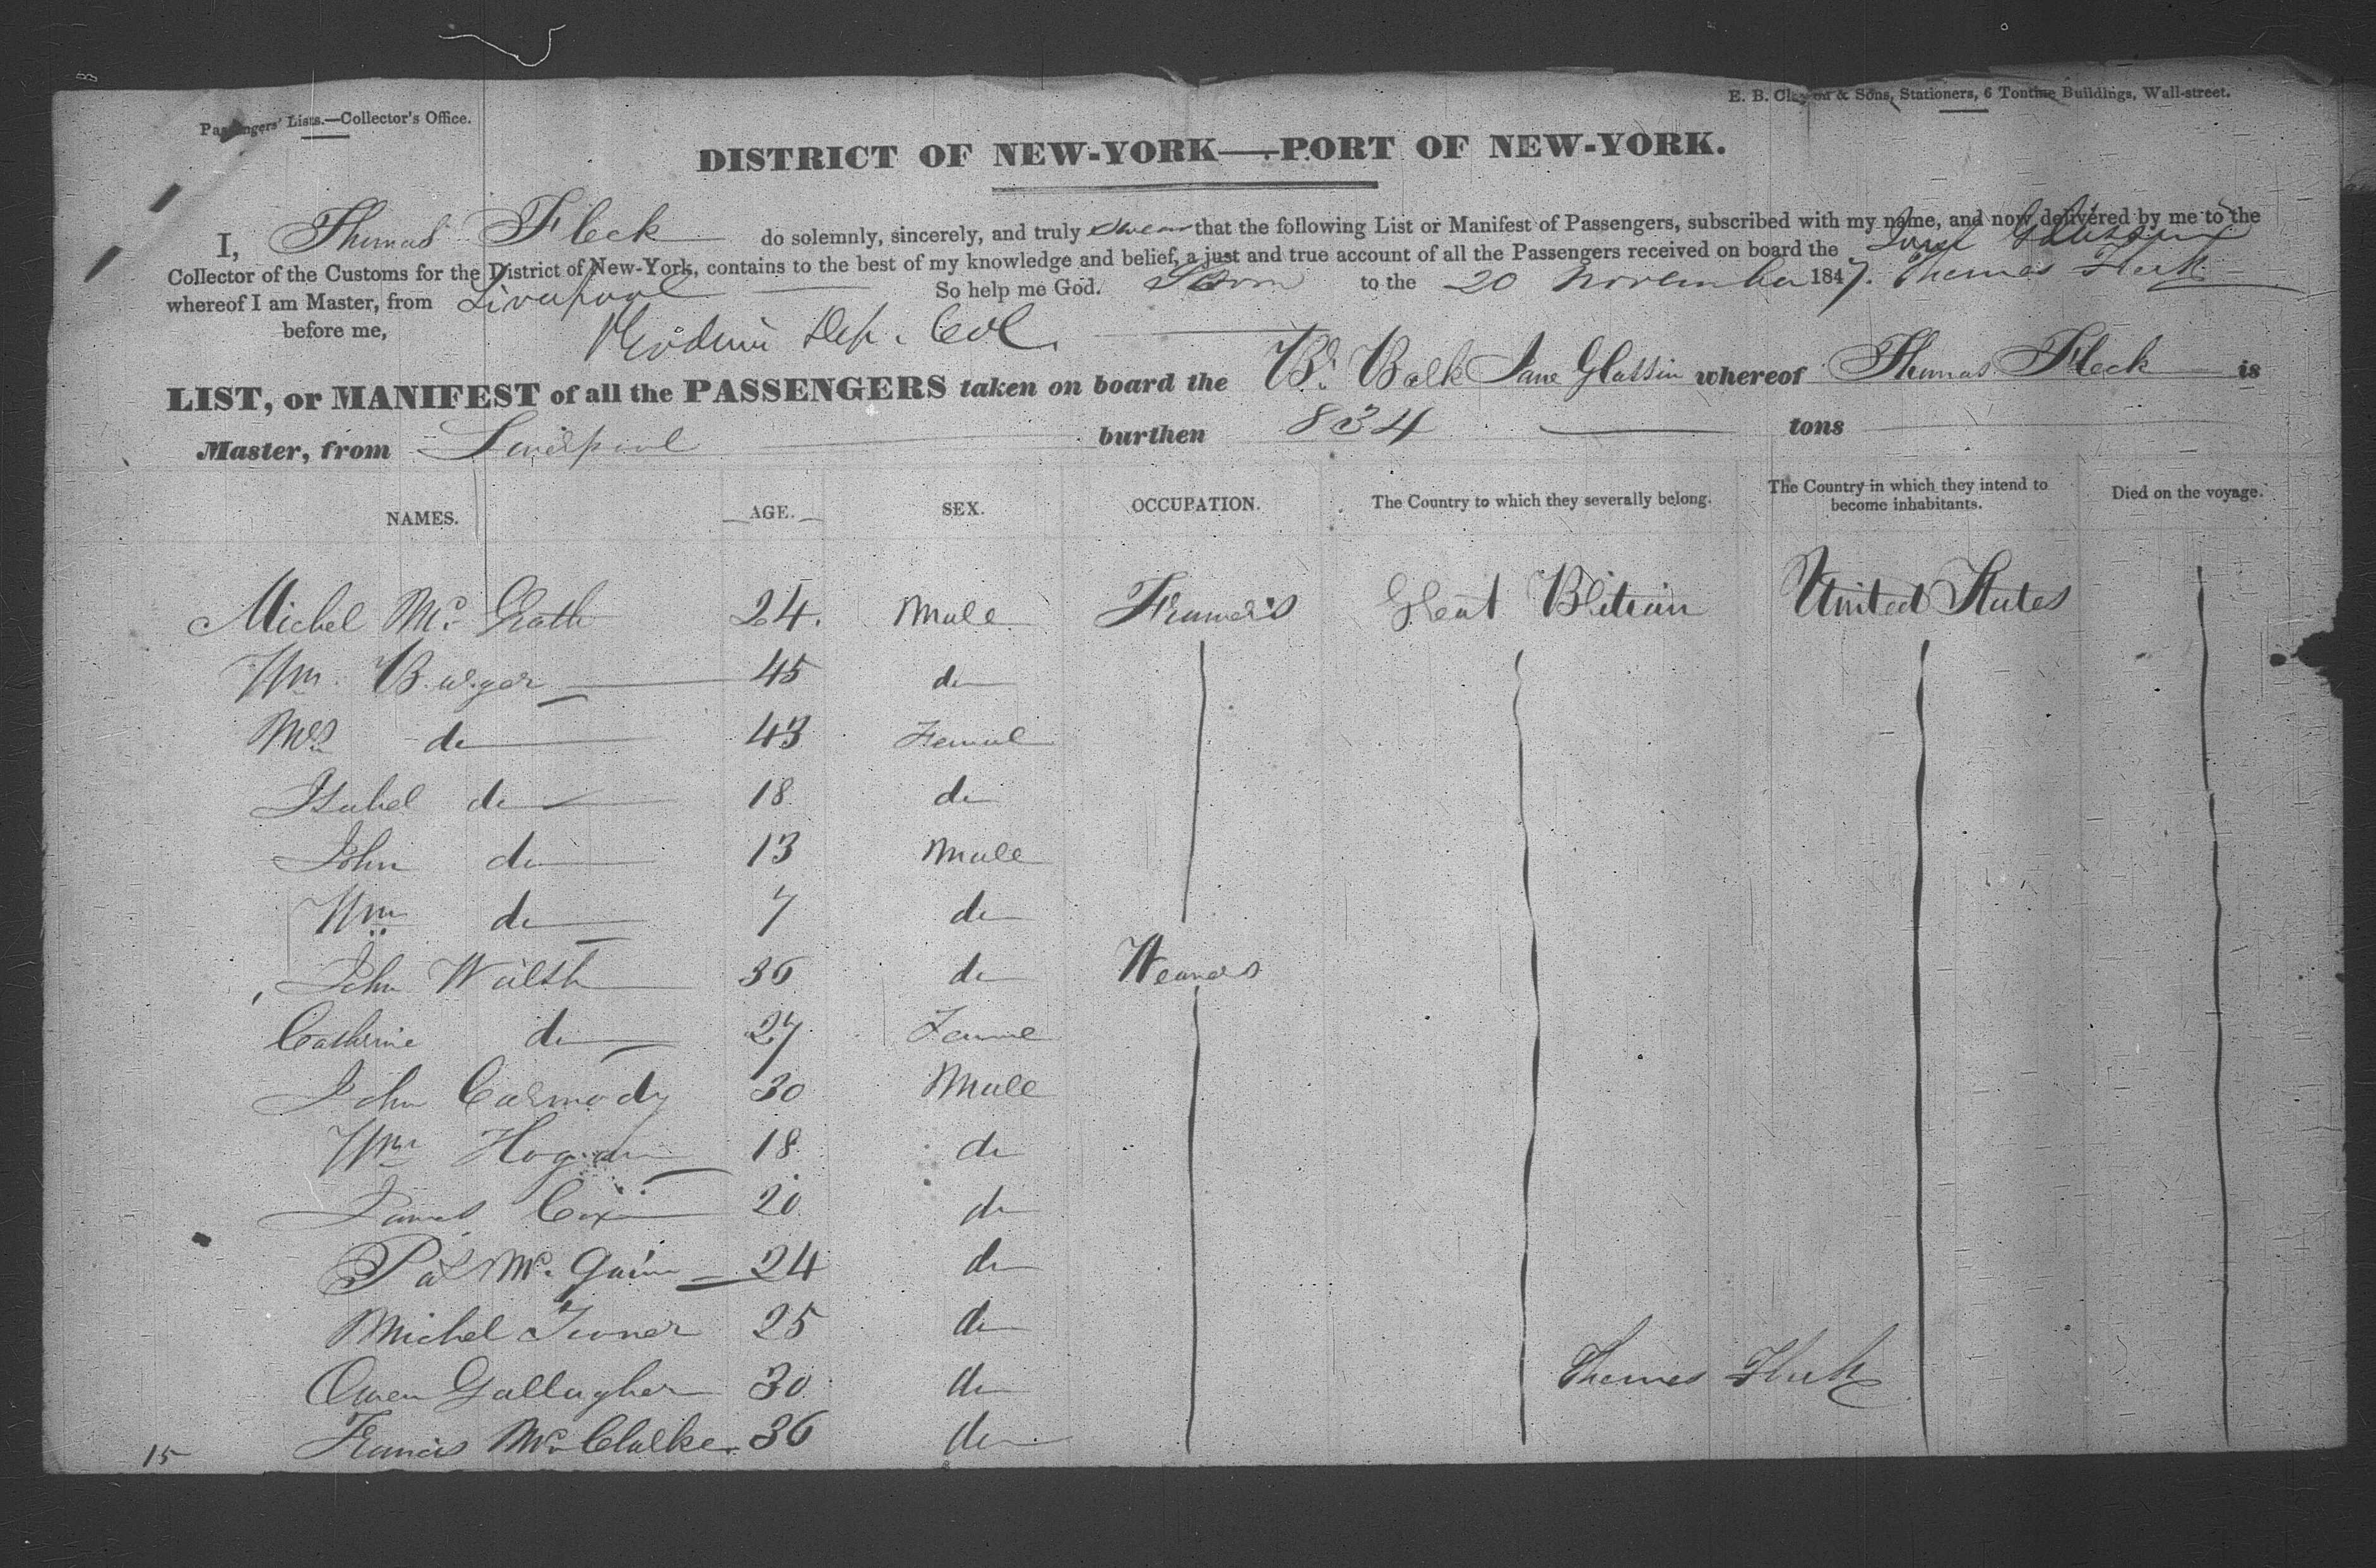 Passengers' Lists.—Collector's Office.
E. B. Clayton & Sons, Stationers, 6 Tontine Buildings, Wall-street.
DISTRICT OF NEW-YORK—PORT OF NEW-YORK.
I, Thomas Fleck do solemnly, sincerely, and truly swear that the following List or Manifest of Passengers, subscribed with my name, and now delivered by me to the
Collector of the Customs for the District of New-York, contains to the best of my knowledge and belief, a just and true account of all the Passengers received on board the Jane Glassin
whereof I am Master, from Liverpool So help me God. Sworn to the 20 November 1847. Thomas Fleck
before me, Dep. Col.
LIST, or MANIFEST of all the PASSENGERS taken on board the Br. Bark Jane Glassin whereof Thomas Fleck is
Master, from Liverpool burthen 834 tons
NAMES. AGE. SEX. OCCUPATION. The Country to which they severally belong. The Country in which they intend to become inhabitants. Died on the voyage.
Michel Mc. Grath 24. Male Framers Great Britian United States
Wm. Burger 45 do
Mrs do 43 Femal
Isabel do 18 do
John do 13 Male
Wm do 7 do
John Walsh 36 do Weavers
Catherine do 27 Femal
John Carmody 30 Male
Wm Hogan 18 do
James Cox 20 do
Pat Mc. Guin 24 do
Michel 25 do
Owen Gallagher 30 do
Thomas Fleck
Francis Mc. Clalke 36 do
15